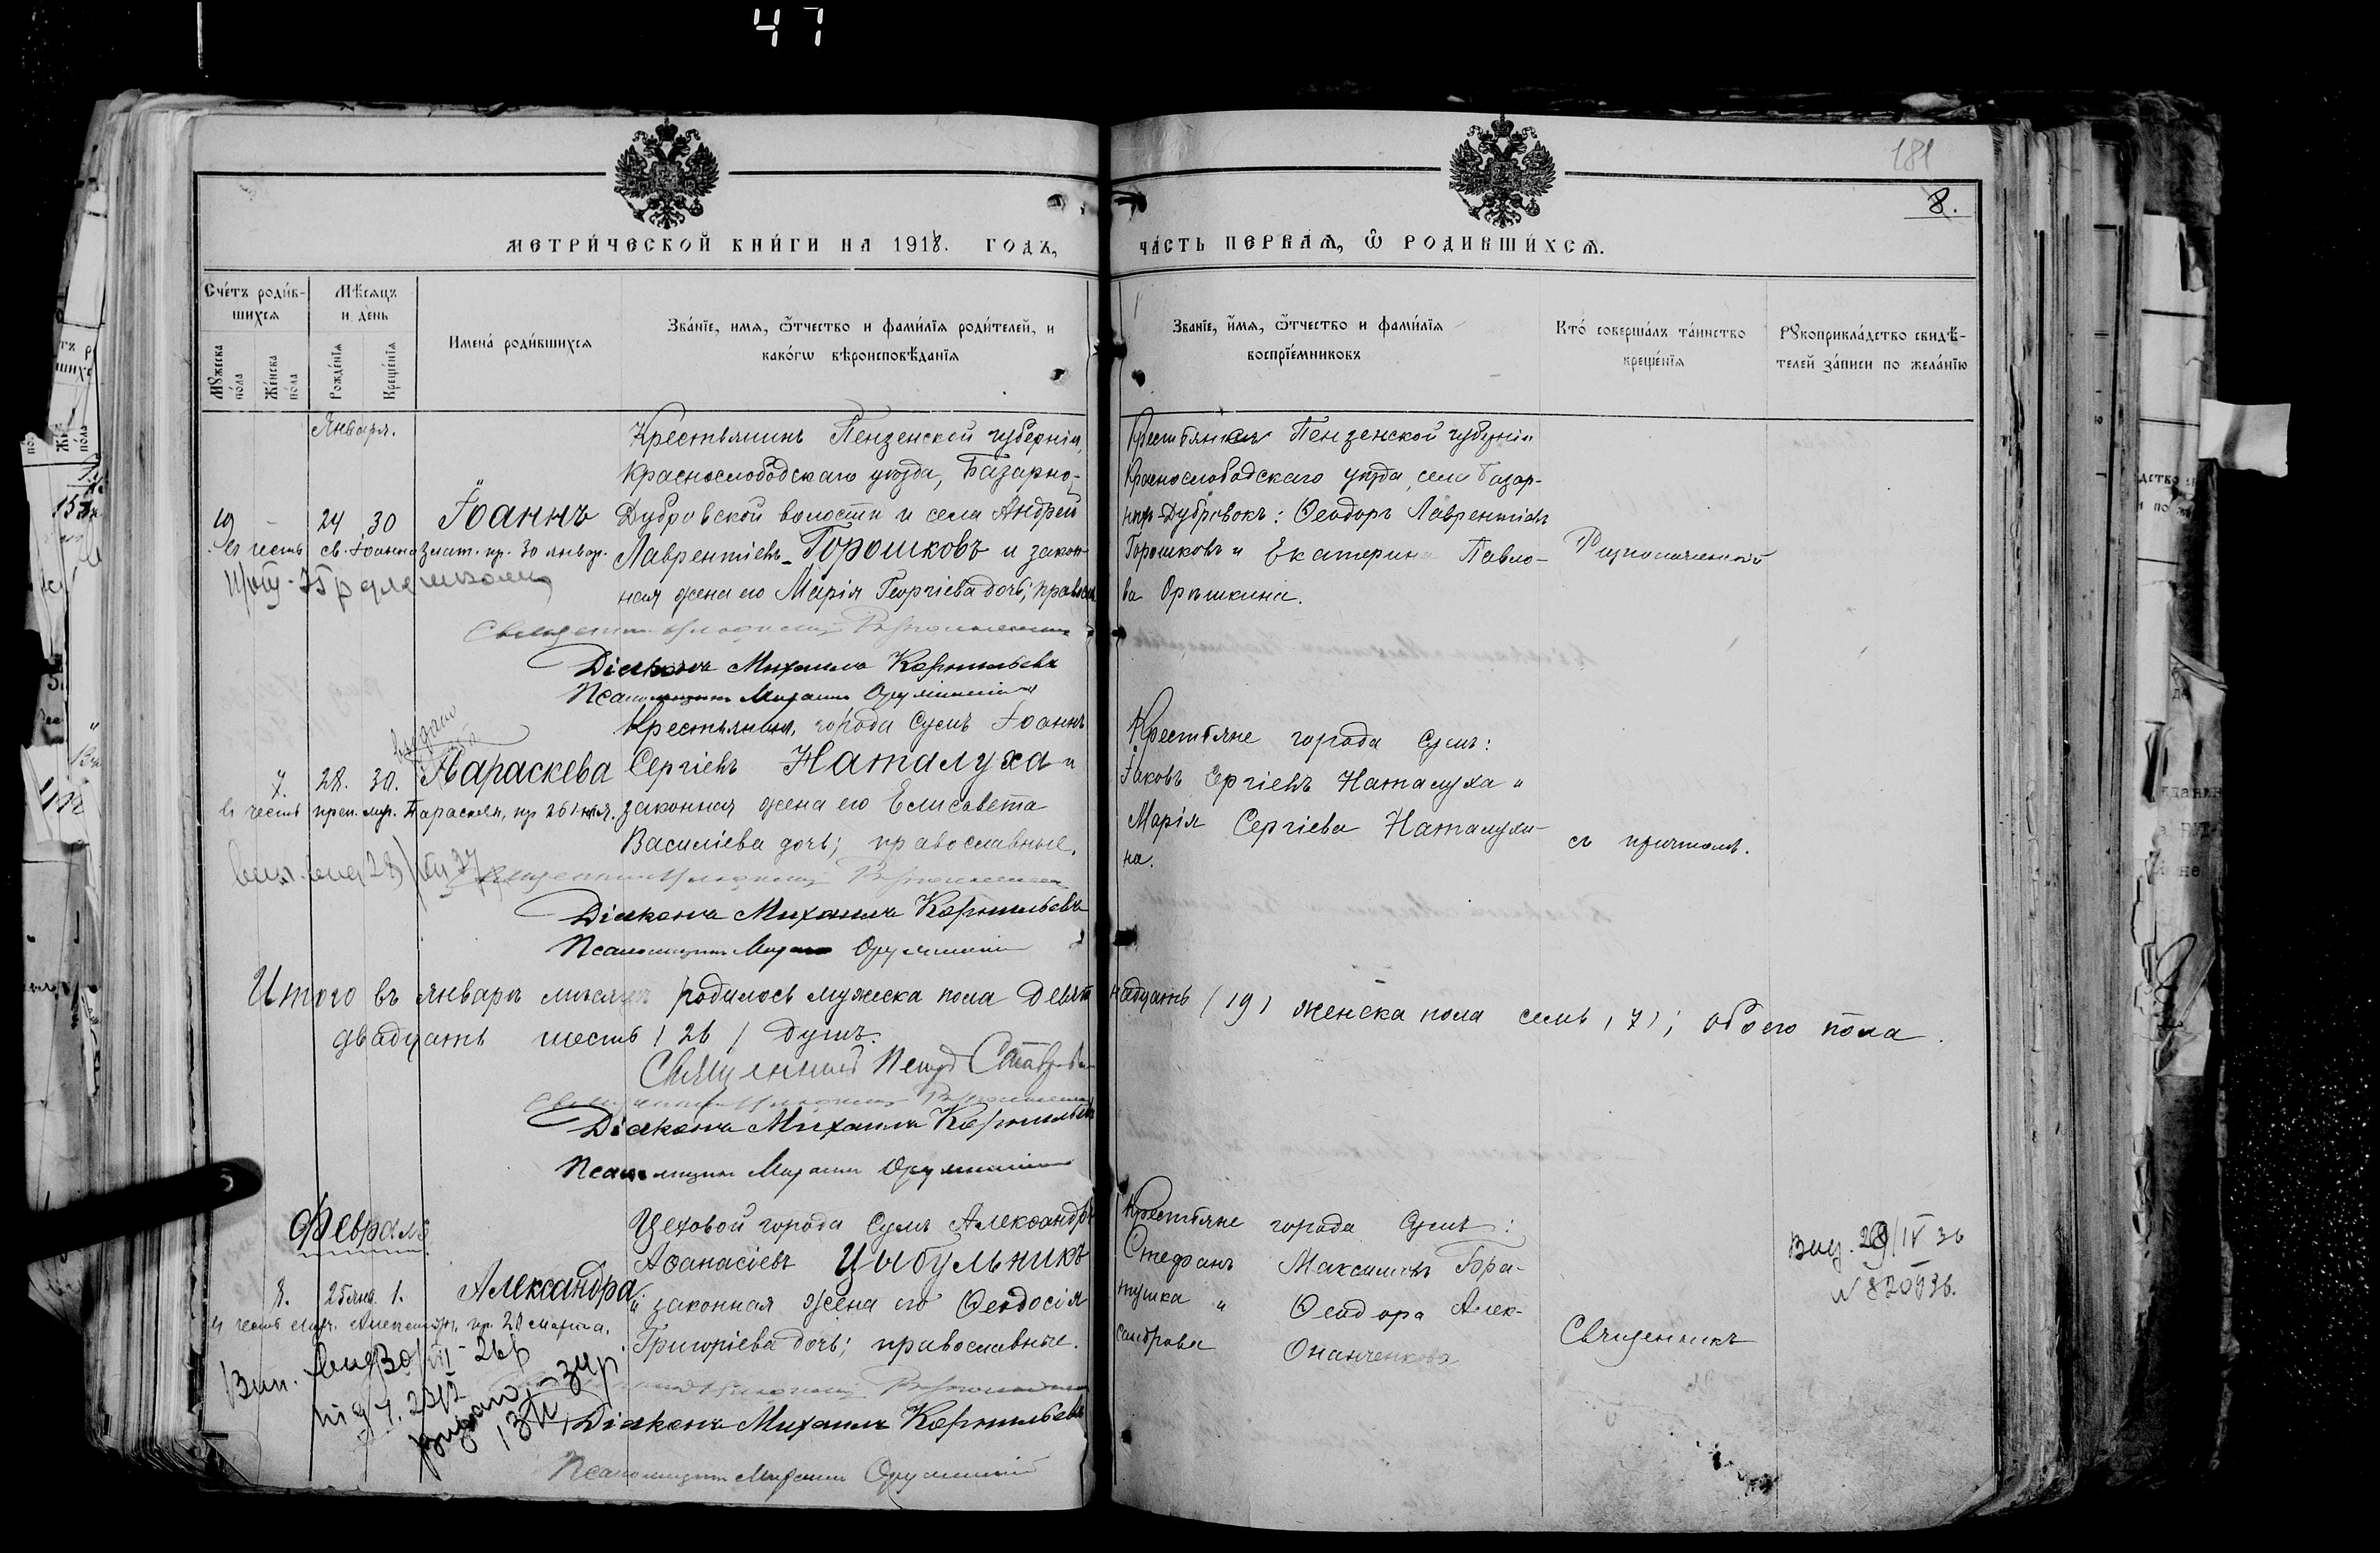 47
181
8.
МЕТРИ́ЧЕСКОЙ КНИ́ГИ НА 1918. ГОДЪ,
ЧА́СТЬ ПЕРВАЯ, Ѡ РОДИВШИ́ХСЯ.
Сче́тъ роди́в-
шихся
Мꙋ́жеска по́ла
Же́нска по́ла
Мѣ́сяцъ
и де́нь
Рожде́нїя
Креще́нїя
Имена́ роди́вшихся
Зва́нїе, имя, ѻ҆́тчество и фами́лїя роди́телей, и
како́гѡ вѣроисповѣ́данїя
Зва́нїе, и́мя, ѻ҆́тчество и фами́лїя
воспрїе́мниковъ
Кто́ соверша́лъ та́инство
креще́нїя
Рꙋкоприкла́дство свидѣ́-
телей за́писи по жела́нїю
Января.
19 - 24 30 Іоаннъ
въ честь св. Іоанна Злат. пр. 30 январ.
Крестьянинъ Пензенской губерніи,
Краснослободскаго уѣзда, Базарно-
Дубровской волости и села Андрей
Лаврентіевъ Горошковъ и закон-
ная жена его Марія Георгіева дочь; православ
Крестьяне Пензенской губерніи
Краснослободскаго уѣзда, села Базар-
ныя-Дубровокъ: Ѳеодоръ Лаврентіевъ
Горошковъ и Екатерина Павло-
ва Орѣшкина.
Діаконъ Михаилъ Корнильевъ
Псаломщикъ Михаилъ
7. 28. 30. Параскева
въ честь преп. муч. Параскев. пр. 26 іюля.
Крестьянинъ города Сумъ Іоаннъ
Сергіевъ Наталуха и
законная жена его Елисавета
Василіева дочь; православные.
Крестьяне города Сумъ:
Іаковъ Сергіевъ Наталуха и
Марія Сергіева Наталухи-
на.
съ причтомъ.
Діаконъ Михаилъ Корнильевъ
Псаломщикъ Михаилъ
Итого въ январѣ мѣсяцѣ родилось мужеска пола девят надцать (19) женска пола семь (7); обоего пола
двадцать шесть (26) душъ.
Священникъ Петръ
Діаконъ Михаилъ Корнильевъ
Псаломщикъ Михаилъ
Февраль
8. 25 янв. 1. Александра
въ честь муч. Александр. пр. 20 марта.
Цеховой города Сумъ Александръ
Аѳанасіевъ Цыбульникъ
и законная жена его Ѳеодосія
Григоріева дочь; православные.
Крестьяне города Сумъ:
Стефанъ Максимовъ Гора-
пушка и Ѳеодора Алек-
сандрова Онанченкова
Священникъ
Вид. 29/IV 36
N 820936.
Діаконъ Михаилъ Корнильевъ
Псаломщикъ Михаилъ